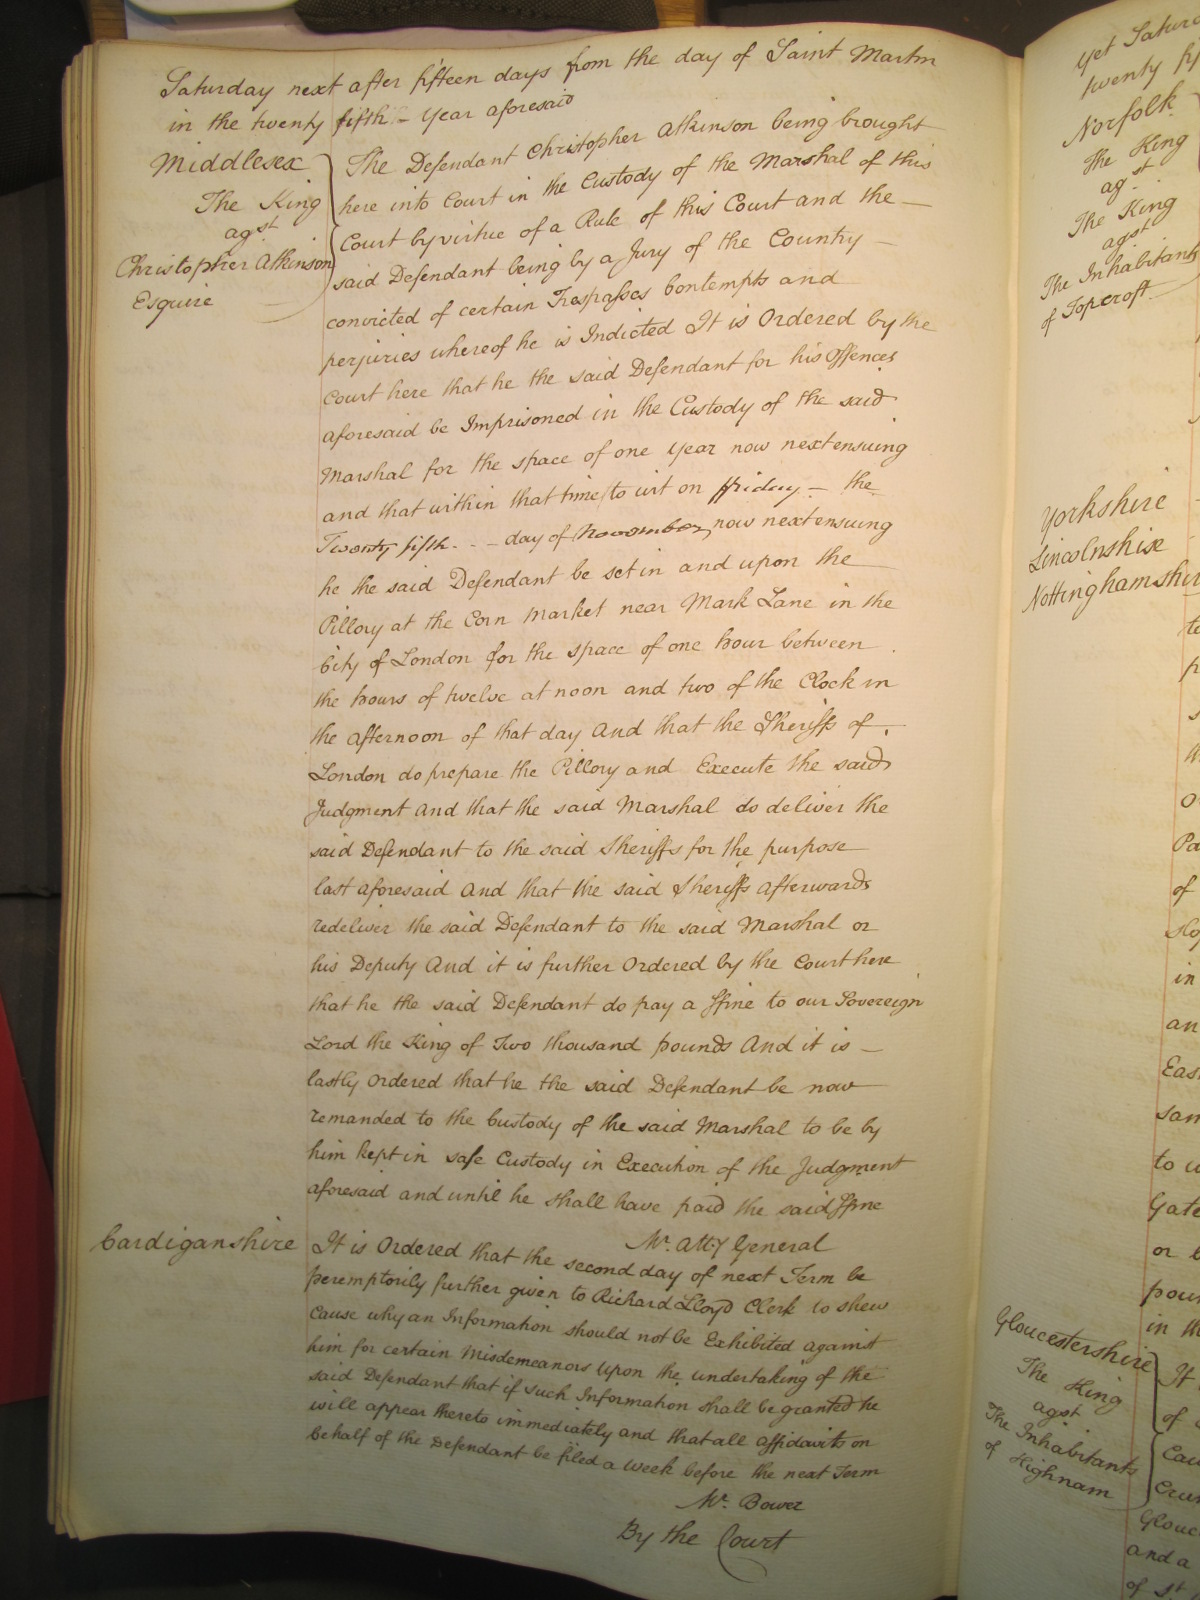 Saturday next after fifteen days from the day of Saint Martin
in the twenty fifth - Year aforesaid
Middlesex
The King
agst
Christopher Atkinson
Esquire
The Defendant Christopher Atkinson being brought
here into Court in the Custody of the Marshal of this
Court by virtue of a Rule of this Court and the —
said Defendant being by a Jury of the Country —
convicted of certain Trespasses Contempts and
perjuries whereof he is Indicted It is Ordered by the
Court here that he the said Defendant for his Offences
aforesaid be Imprisoned in the Custody of the said
Marshal for the space of one Year now next ensuing
and that within that time to wit on ffriday — the
Twenty fifth - - - day of November now next ensuing
he the said Defendant be set in and upon the
Pillory at the Corn Market near Mark Lane in the
City of London for the space of one hour between
the hours of twelve at noon and two of the Clock in
the afternoon of that day And that the Sheriffs of
London do prepare the Pillory and Execute the said
Judgment And that the said Marshal do deliver the
said Defendant to the said Sheriffs for the purpose
last aforesaid And that the said Sheriffs afterwards
redeliver the said Defendant to the said Marshal or
his Deputy And it is further Ordered by the Court here
that he the said Defendant do pay a ffine to our Sovereign
Lord the King of Two thousand pounds And it is —
lastly Ordered that he the said Defendant be now
remanded to the Custody of the said Marshal to be by
him kept in safe Custody in Execution of the Judgment
aforesaid and until he shall have paid the said ffine
Mr. Atty General
Cardiganshire
It is Ordered that the second day of next Term be
peremptorily further given to Richard Lloyd Clerk to shew
Cause why an Information should not be Exhibited against
him for certain Misdemeanors upon the undertaking of the
said Defendant that if such Information shall be granted he
will appear thereto immediately and that all affidavits on
behalf of the Defendant be filed a Week before the next Term
Mr. Bower
By the Court
Yet Satur
twenty fi
Norfolk
The King
agst
The King
agst
The Inhabitants
of Topcroft
Yorkshire
Lincolnshire
Nottinghamshir
of
in
an
Eas
sam
to
Gate
or
poun
in th
Gloucestershire
The King
agst
The Inhabitants
of Highnam
It
of
Cau
Glouc
and a
of St